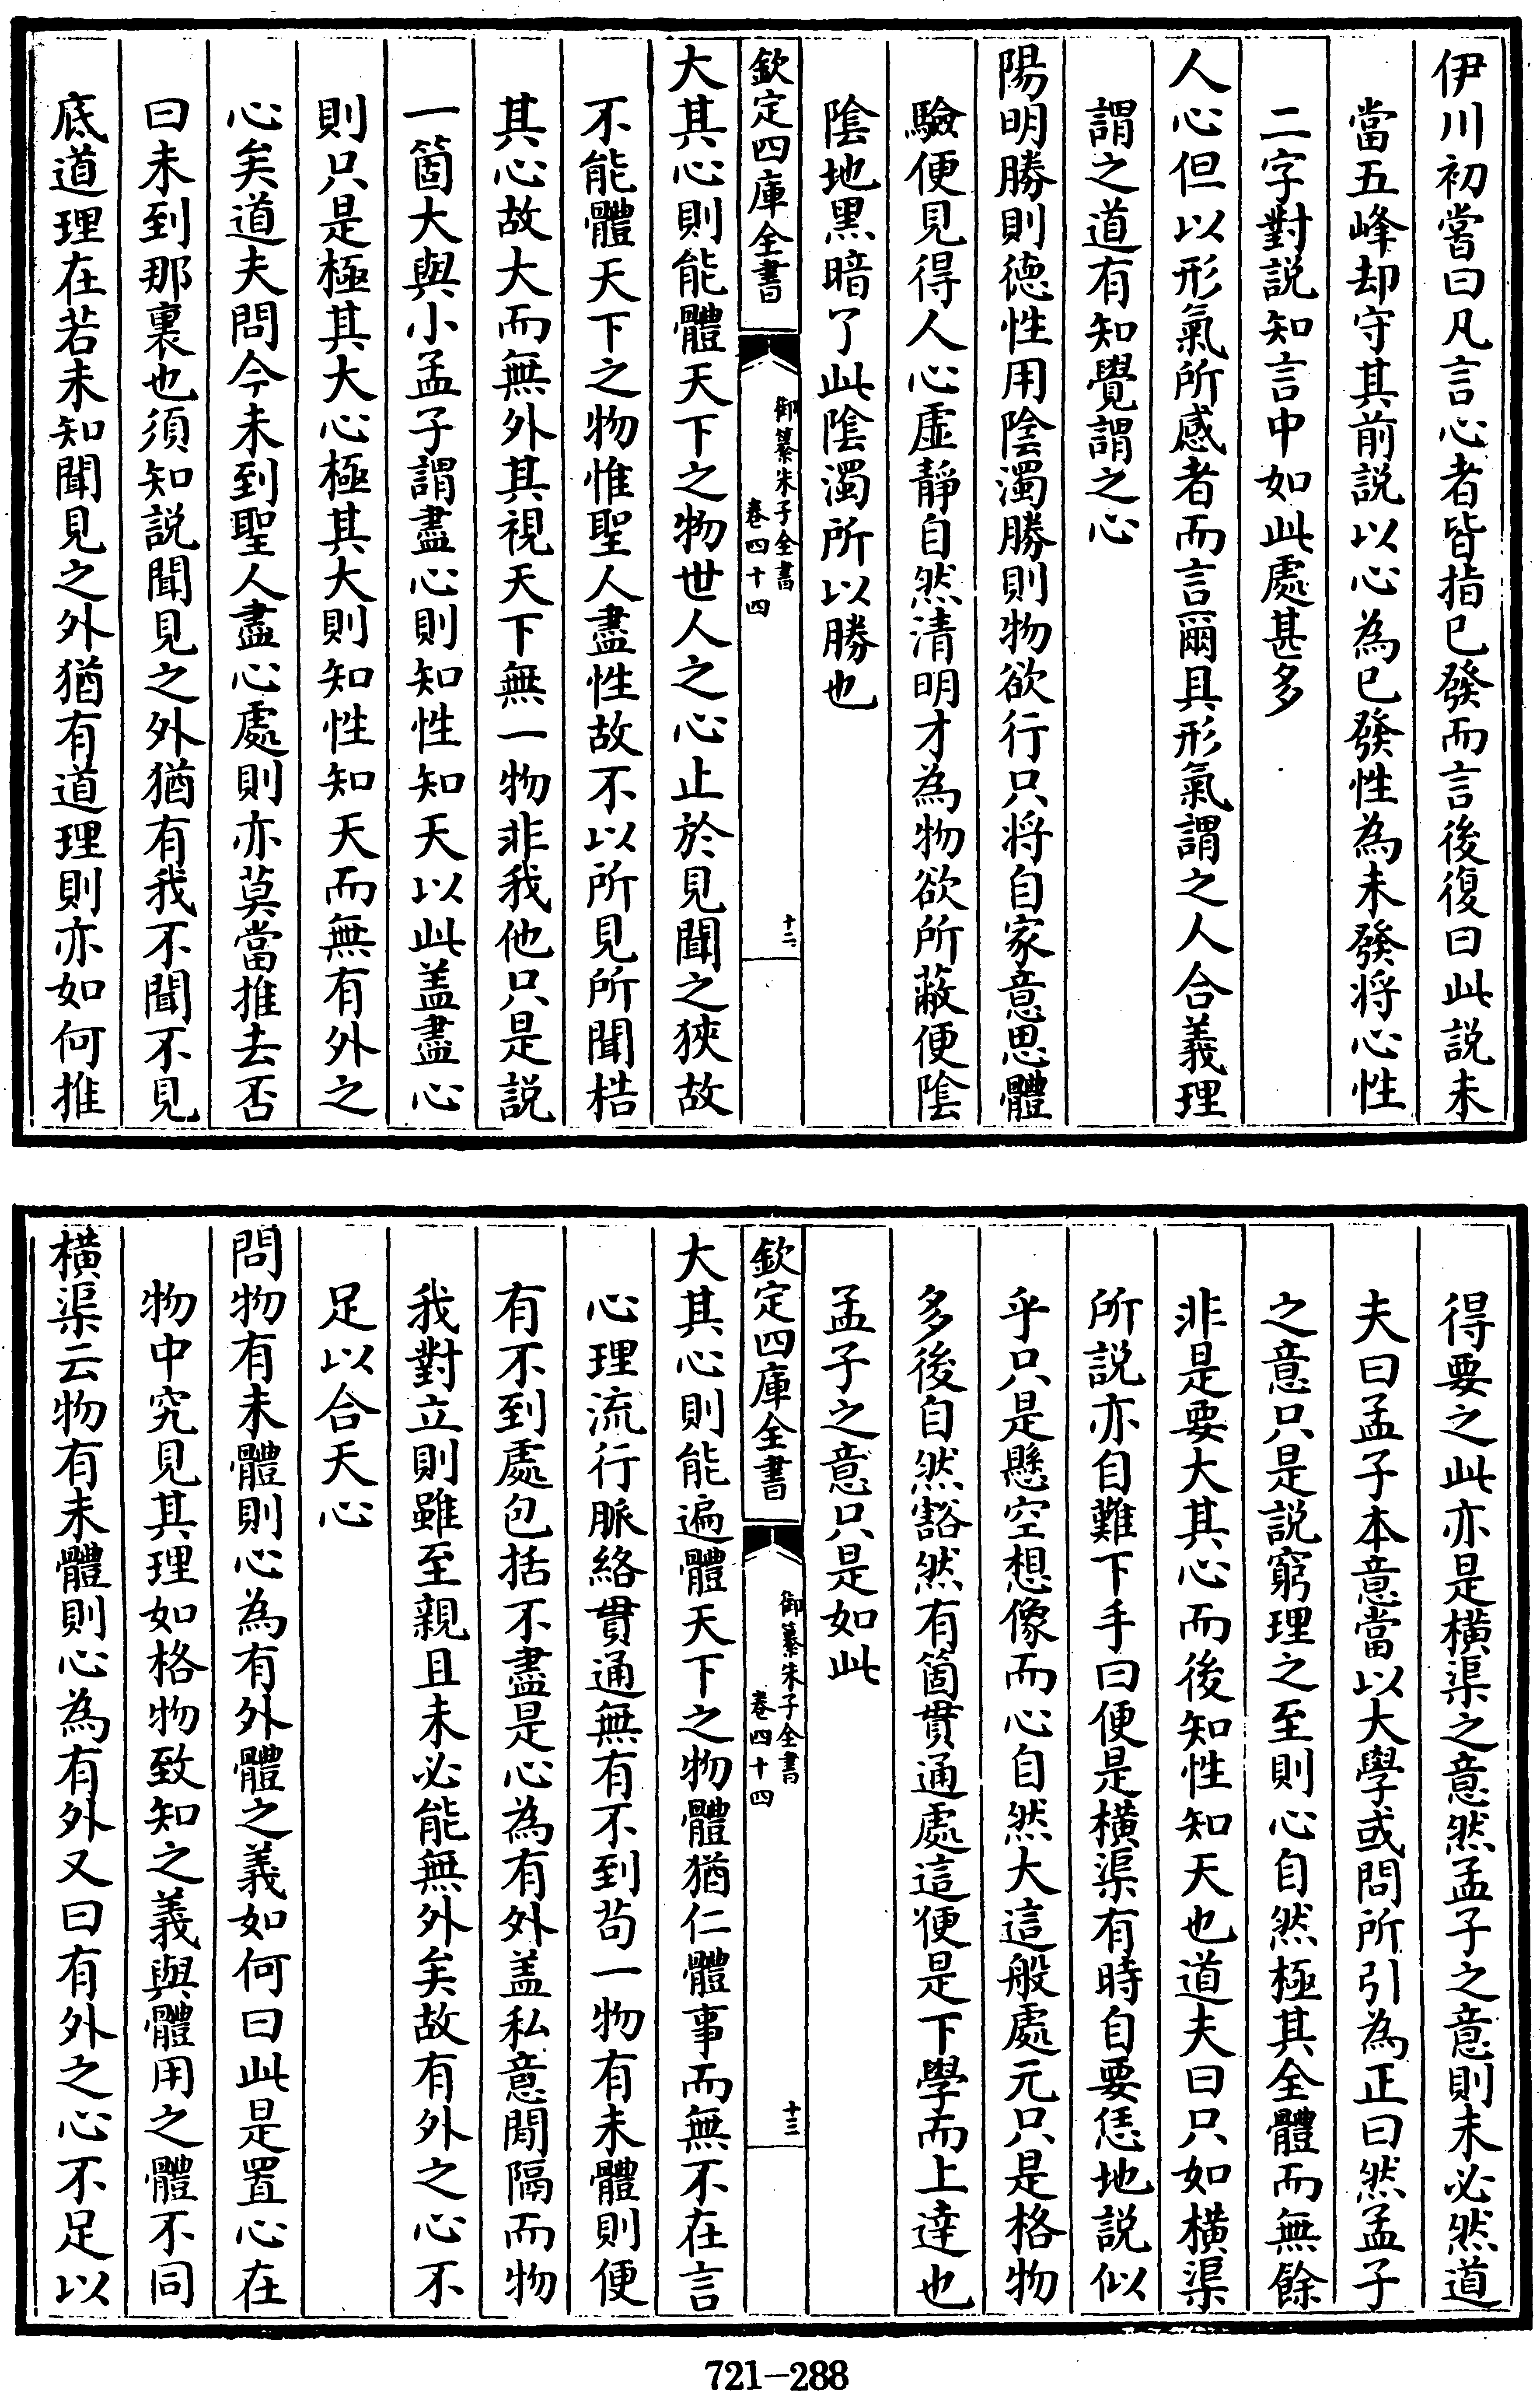 伊川初嘗曰凡言心者皆指已發而言後復曰此説未
當五峰却守其前説以心為已發性為未發将心性
二字對説知言中如此處甚多
人心但以形氣所感者而言爾具形氣謂之人合義理
謂之道有知覺謂之心
陽明勝則徳性用陰濁勝則物欲行只将自家意思體
驗便見得人心虚靜自然清明才為物欲所蔽便陰
陰地黒暗了此陰濁所以勝也
欽定四庫全書
御纂朱子全書
卷四十四
十二
大其心則能體天下之物世人之心止於見聞之狹故
不能體天下之物惟聖人盡性故不以所見所聞梏
其心故大而無外其視天下無一物非我他只是説
一箇大與小孟子謂盡心則知性知天以此盖盡心
則只是極其大心極其大則知性知天而無有外之
心矣道夫問今未到聖人盡心處則亦莫當推去否
曰未到那裏也須知説聞見之外猶有我不聞不見
底道理在若未知聞見之外猶有道理則亦如何推
得要之此亦是横渠之意然孟子之意則未必然道
夫曰孟子本意當以大學或問所引為正曰然孟子
之意只是説窮理之至則心自然極其全體而無餘
非是要大其心而後知性知天也道夫曰只如横渠
所説亦自難下手曰便是横渠有時自要恁地説似
乎只是懸空想像而心自然大這般處元只是格物
多後自然豁然有箇貫通處這便是下學而上達也
孟子之意只是如此
欽定四庫全書
御纂朱子全書
卷四十四
十三
大其心則能遍體天下之物體猶仁體事而無不在言
心理流行脈絡貫通無有不到苟一物有未體則便
有不到處包括不盡是心為有外盖私意間隔而物
我對立則雖至親且未必能無外矣故有外之心不
足以合天心
問物有未體則心為有外體之義如何曰此是置心在
物中究見其理如格物致知之義與體用之體不同
横渠云物有未體則心為有外又曰有外之心不足以
721-288